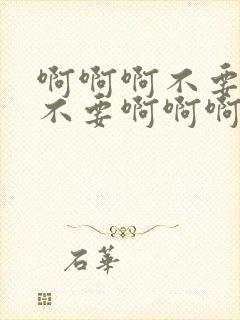 啊啊啊不要
不要啊啊啊
石華